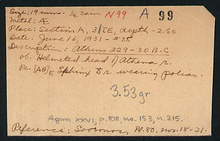 Size: 19 mm. ¼ corr. N99 A 99
Metal: Æ
Place: Section A, 3/ΣΕ, depth -2.60
Date: June 16, 1931 -
Description: Athens 229-30 B.C.
ob. Helmeted head of Athena r.
Re. [ΑΘ]Ε Sphinx r. wearing polos.
3.53 gr
Agora XXVI, p. no. 153, n. 215.
Reference: Svoronos, Pl. 80, nos. 18-21.